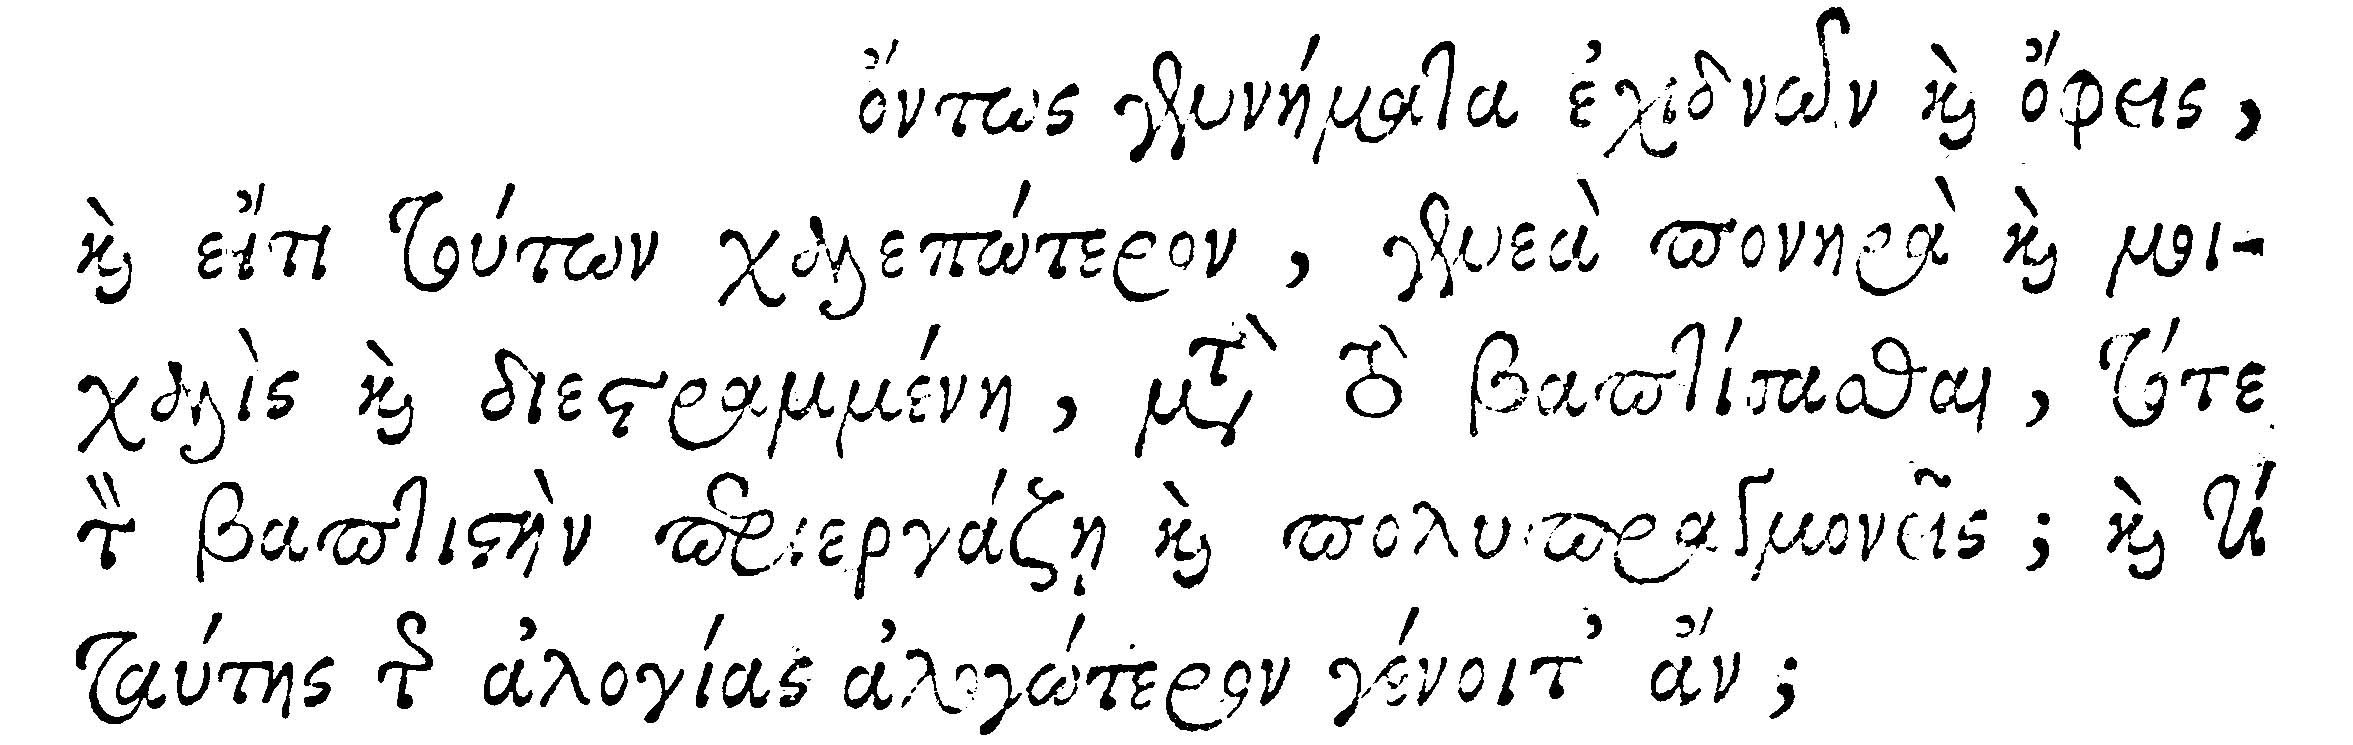 ὄντως γεννήματα ἐχιδνῶν καὶ ὄφεις,
καὶ εἴ τι τούτων χαλεπώτερον, γενεὰ πονηρὰ καὶ μοι-
χαλὶς καὶ διεστραμμένη, μετὰ τὸ βαπτίσασθαι, τότε
τὸν βαπτιστὴν περιεργάζῃ καὶ πολυπραγμονεῖς; καὶ τί
ταύτης τῆς ἀλογίας ἀλογώτερον γένοιτ’ ἄν;